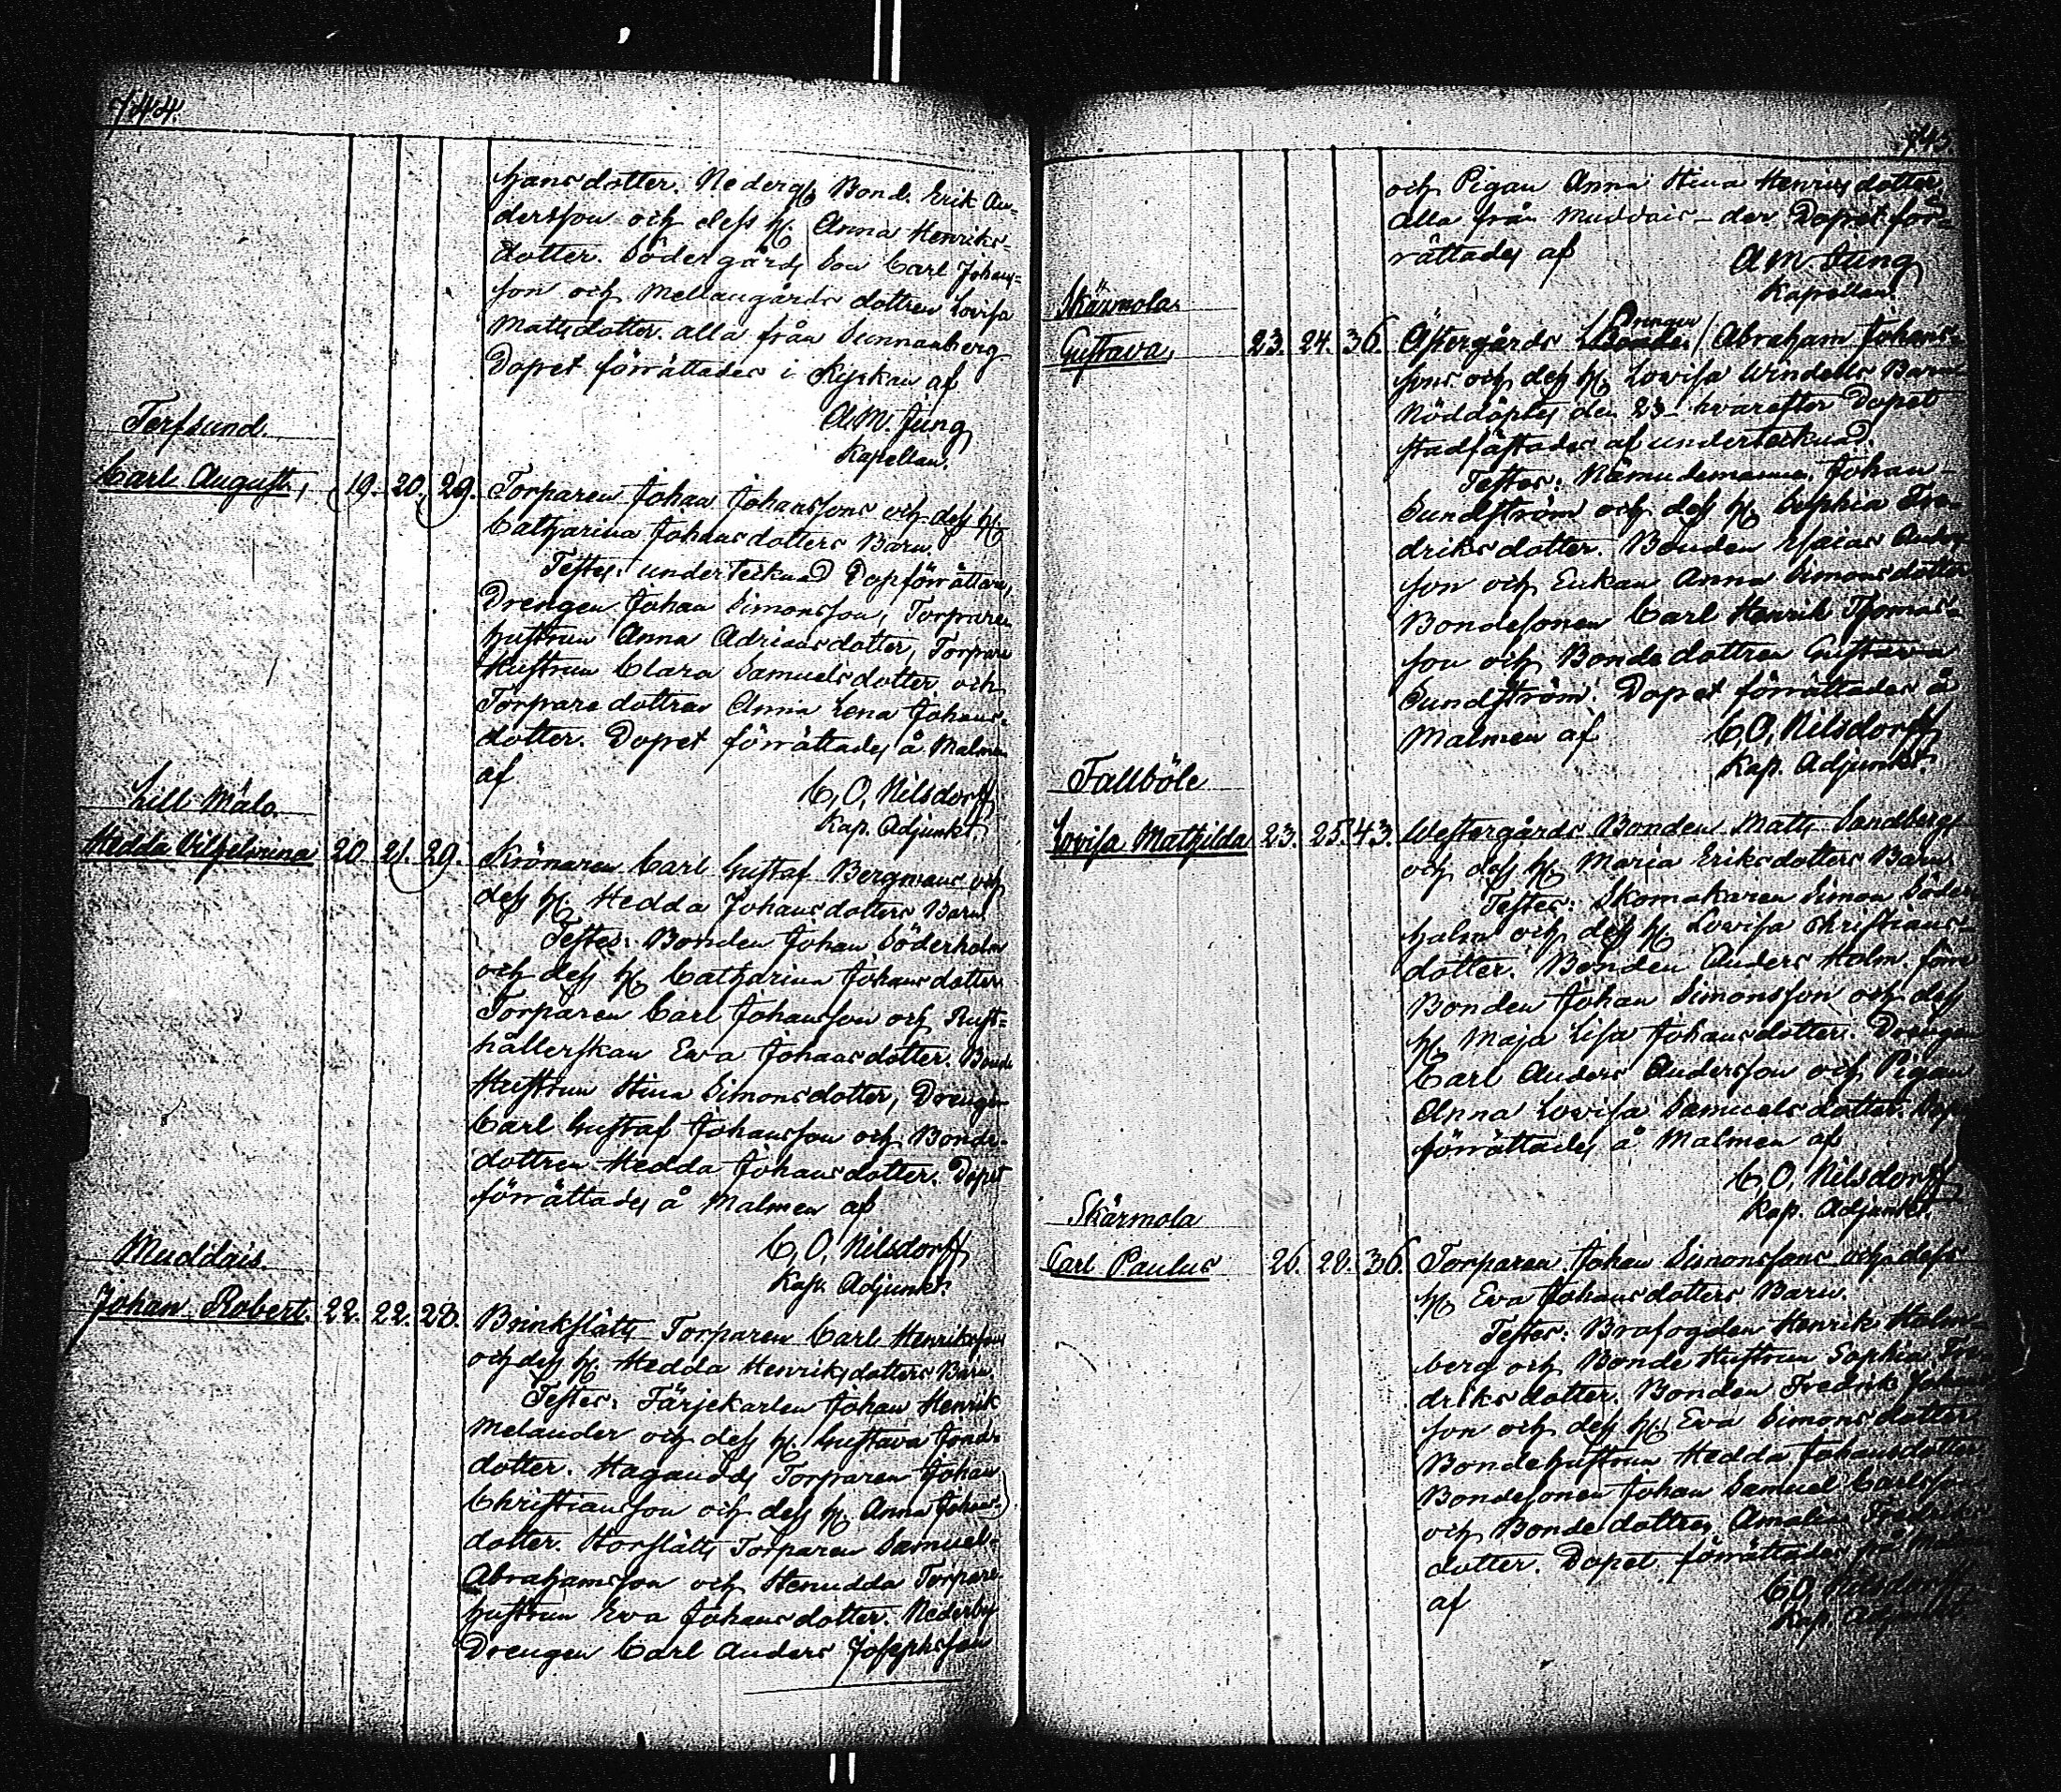 744.
hansdotter. Nedergs Bond. Erik An-
dersson och dess H. Anna Henriks-
dotter. Södergårds Son Carl Johans-
son och Mellangårds dottren Lovisa
Mattsdotter. alla från Sunnanberg
Dopet förrättades i Kyrkan af
A.M. Jung
Kapellan.
Terfsund.
Carl August, 19. 20. 29. Torparen Johan Johanssons och dess H.
Catharina Johansdotters Barn.
Testes: undertecknad Dopförrättare,
Drengen Johan Simonsson, Torpare
hustrun Anna Adriansdotter, Torpare
Hustrun Clara Samuelsdotter och
Torpare dottren Anna Lena Johans-
dotter. Dopet förrättades å Malmen
af
C, O, Nilsdorff
Kap. Adjunkt
Lill Mälo.
Hedda Vilhelmina 20 21. 29. Krönaren Carl Gustaf Bergmans och
dess H. Hedda Johansdotters Barn.
Testes: Bonden Johan Söderholm
och dess H. Catharina Johansdotter
Torparen Carl Johansson och Rust-
hållerskan Eva Johansdotter. Bonde
Hustrun Stina Simonsdotter, Drengen
Carl Gustaf Johansson och Bonde-
dottren Hedda Johansdotter. Dopet
förrättades å Malmen af
C, O, Nilsdorff
Kap. Adjunkt.
Muddais.
Johan Robert. 22. 22. 28. Brinkslätts Torparen Carl Henriksson
och dess H. Hedda Henriksdotters Barn.
Testes: Färjekarlen Johan Henrik
Melander och dess H. Gustava Jonds
dotter. Hagaudds Torparen Johan
Christiansson och dess H. Anna Johans-
dotter. Storslätts Torparen Samuel
Abrahamsson och Stenudda Torpare
hustrun Eva Johansdotter. Nederby
Drengen Carl Anders Josephsson
745
och Pigan Anna Stina Henriksdotter.
alla från Muddais der Dopet för-
rättades af
A M Jung
Kapellan.
Skärmola.
Gustava, 23. 24. 36. Östergårds Drengen Abraham Johans-
sons och dess H. Lovisa Windells Barn
Nöddöptes den 23 hvarefter Dopet
stadfästades af undertecknad.
Testes: Nämndemannen Johan
Sundström och dess H. Sophia Fre-
driksdotter. Bonden Esaias Anders
son och Enkan Anna Simonsdotter
Bondesonen Carl Henrik Thomas-
son och Bondedottren Gustava
Sundström. Dopet förrättades å
Malmen af
C. O, Nilsdorff
Kap. Adjunkt.
Tallböle
Lovisa Mathilda 23. 25. 43. Westergårds Bonden Matts Sandbergs
och dess H. Maria Eriksdotters Barn
Testes: Skomakaren Simon Söder
holm och dess H. Lovisa Christians-
dotter. Bonden Anders Holm. förre
Bonden Johan Simonsson och dess
H. Maja Lisa Johansdotter. Drengen
Carl Anders Andersson och Pigan
Anna Lovisa Samuelsdotter. Dopet
förrättades å Malmen af
C, O, Nilsdorff
Kap. Adjunkt.
Skärmola
Carl Paulus 26. 28. 36. Torparen Johan Simonssons och dess
H. Eva Johansdotters Barn.
Testes: Brofogden Henrik Holm-
berg och Bonde Hustrun Sophia Fre-
driksdotter. Bonden Fredrik Johans
son och dess H. Eva Simonsdotter
Bondehustrun Hedda Johansdotter
Bondesonen Johan Samuel Carlsson
och Bondedottren Amalia Fredriks
dotter. Dopet förrättades på Malmen
af
C, O, Nilsdorff
Kap. Adjunkt